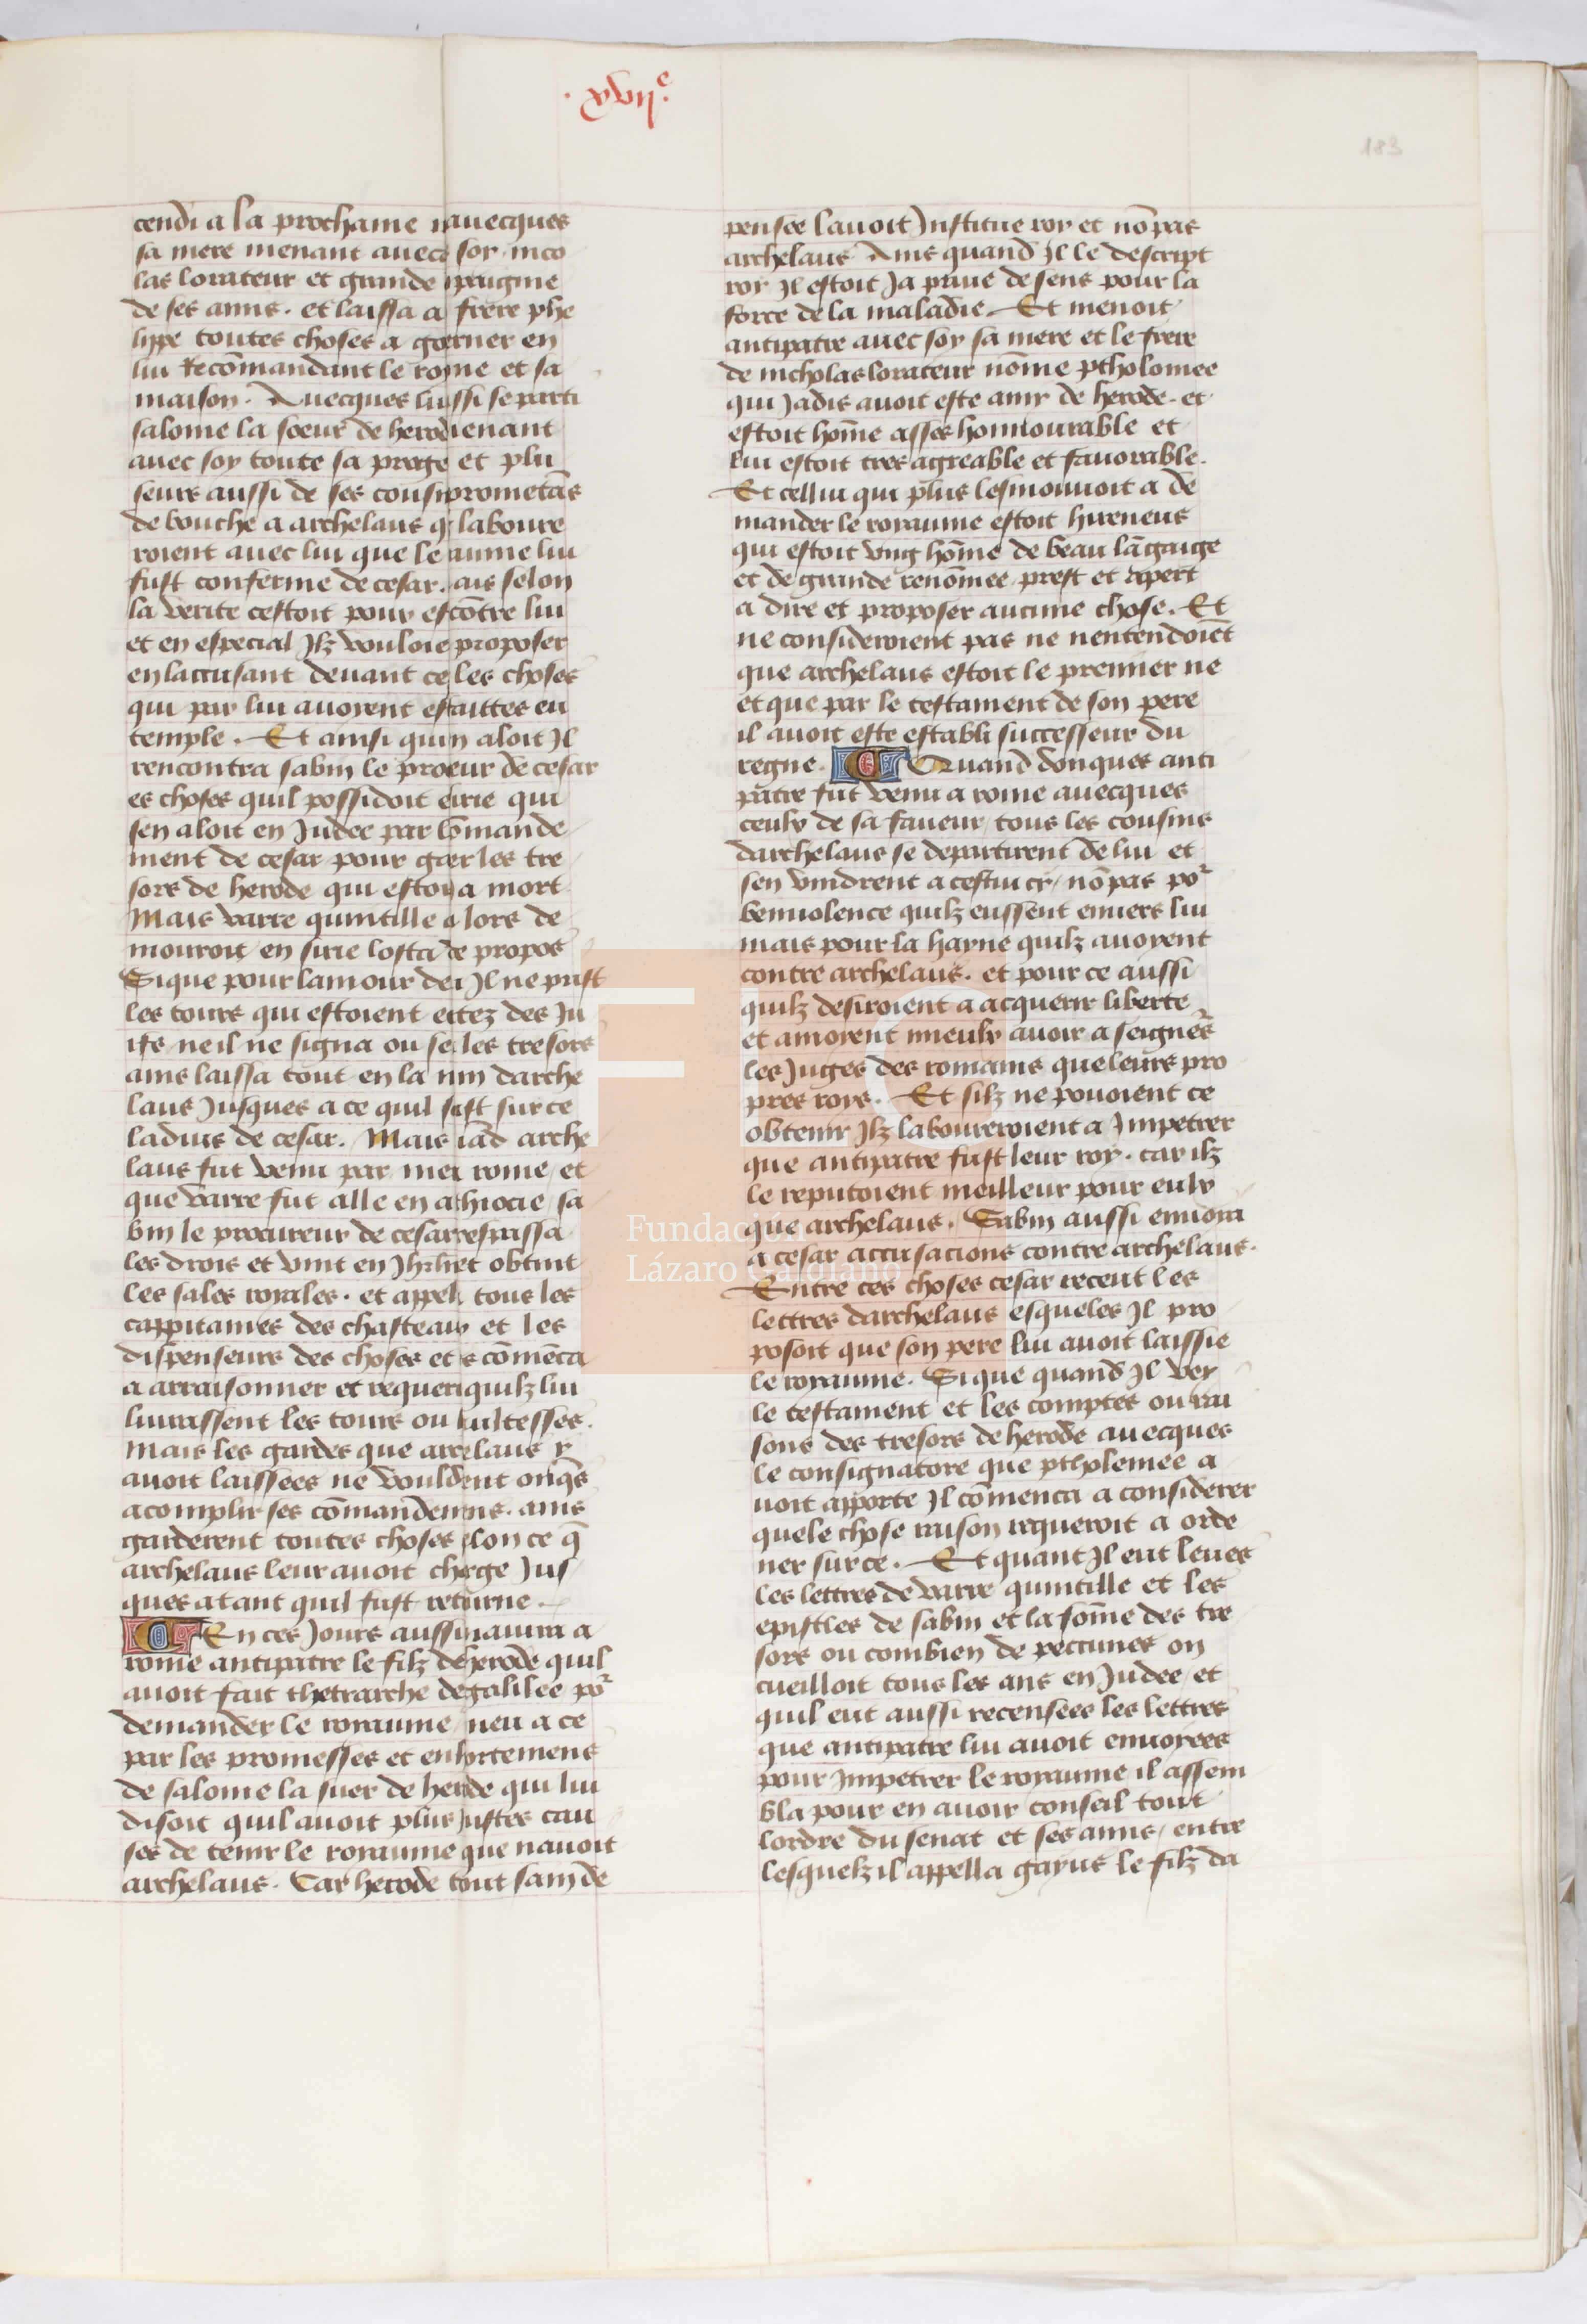 .xvii.e
183
cendi a la prochaine m auecques
sa mere menant auec soy nico
las lorateur et grande paigme
de ses amis . et laissa a frere phe
lippe toutes choses a gouerner en
lui Recōmandant le rome et sa
maison . Auecques lui ssi se parti
salome la soeur de herode enant
auec soy toute sa proge et plu
seurs aussi de ses cousi prometās
de bouche a archelaus q laboure
roient auec lui que le aume lui
fust conferme de cesar . ais selon
la verite cestoit pour escōtre lui
et en especial Ilz vouloie proposer
en laccusant deuant ce les choses
qui par lui auoyent es faittes eu
temple . Et ainsi quin aloit Il
rencontra sabin le proeur de cesar
es choses quil possidoit eirie qui
sen aloit en Judee par cōmande
ment de cesar pour gaer les tre
sors de herode qui estoi a mort
Mais varre quintille a lors de
mouroit en sirie losta de propos
Sique pour lamour de Il ne prist
les tours qui estoient citez des Ju
ifs ne il ne signa ou se les tresors
ains laissa tout en la min darche
laus Jusques a ce quil seust sur ce
laduis de cesar . Mais quād arche
laus fut venu par mer rome et
que varre fut alle en athiocie sa
bin le procureur de cesar trespassa
les drois et vint en Jhrlȝ et obtint
les sales royales . et appella tous les
cappitaines des chasteaux et les
dispenseurs des choses et cōmēca
a arraisonner et requerir quilz lui
liurassent les tours ou fortresses .
Mais les gardes que archelaus y
auoit laissees ne vouldrent onqs
acomplir ses cōmandemens . ains
garderent toutes choses selon ce q̄
archelaus leur auoit charge Jus
ques atant quil fust retourne .
C En ces Jours aussi nauira a
rome antipatre le filz de herode quil
auoit fait thetrarche de galilee por
demander le royaume meu a ce
par les promesses et enhortemens
de salome la suer de herode qui lui
disoit quil auoit plus Justes cau
ses de tenir le royaume que nauoit
archelaus . Car herode tout sain de
pensee lauoit Institue roy et nō pas
archelaus Ains quand Il le descript
roy Il estoit Ja priue de sens pour la
force de la maladie . Et menoit
antipatre auec soy sa mere et le frere
de nicholas lorateur nōme ptholomee
qui Jadis auoit este amy de herode . et
estoit hōme asses honnourable et
lui estoit tres agreable et fauorable .
Et cellui qui plus lesmouuoit a de
mander le royaume estoit hireneus
qui estoit vng hōme de beau lāgaige
et de grande renōmee prest et apert
a dire et proposer aucune chose . Et
ne consideroient pas ne nentendoiēt
que archelaus estoit le premier ne
et que par le testament de son pere
il auoit este establi successeur du
regne . C Quand donques anti
patre fut venu a rome auecques
ceulx de sa faueur tous les cousins
darchelaus se departirent de lui et
sen vindrent a cestui cy / nō pas por
beniuolence quilz eussent enuers lui
mais pour la hayne quilz auoyent
contre archelaus . et pour ce aussi
quilz desiroient a acquerir liberte
et amoyent mieulx auoir a seignrs
les Juges des romains que leurs pro
pres roys . Et silz ne pouoient ce
obtenir Ilz laboureroient a Impetrer
que antipatre fust leur roy . car ilz
le reputoient meilleur pour eulx
que archelaus . Sabin aussi enuoia
a cesar accusacions contre archelaus .
Entre ces choses cesar receut les
lettres darchelaus esqueles Il pro
posoit que son pere lui auoit laissie
le royaume . Sique quand Il vey
le testament et les comptes ou rai
sons des tresors de herode auecques
le consignatore que ptholemee a
uoit apporte Il cōmenca a considerer
quele chose raison requeroit a orde
ner sur ce . Et quant Il eut leues
les lettres de varre quintille et les
epistles de sabin et la sōme des tre
sors ou combien de peccunes on
cueilloit tous les ans en Judee et
quil eut aussi recensees les lettres
que antipatre lui auoit enuoyees
pour Impetrer le royaume il assem
bla pour en auoir conseil tout
lordre du senat et ses amis / entre
lesquelz il appella gayus le filz da
Fundación
Lázaro Galdiano